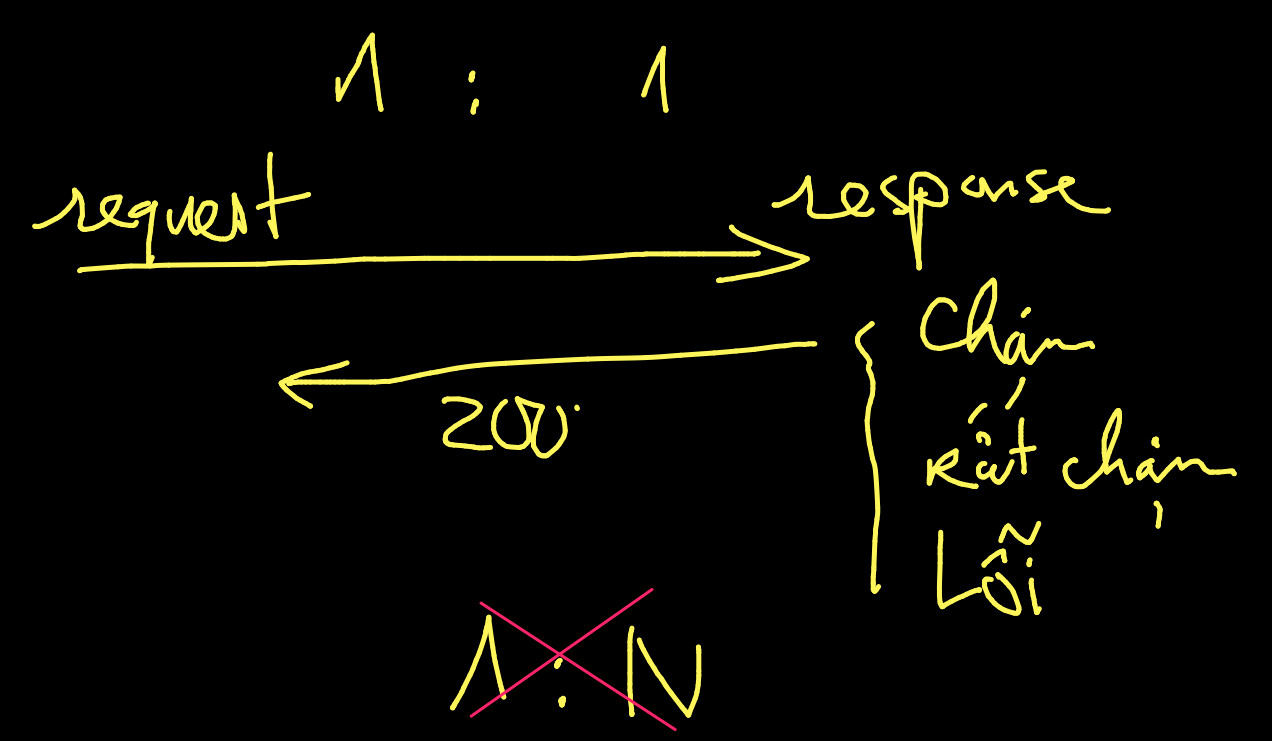 1 : 1
request response
Chậm
200
Rất chậm
Lỗi
1 : N